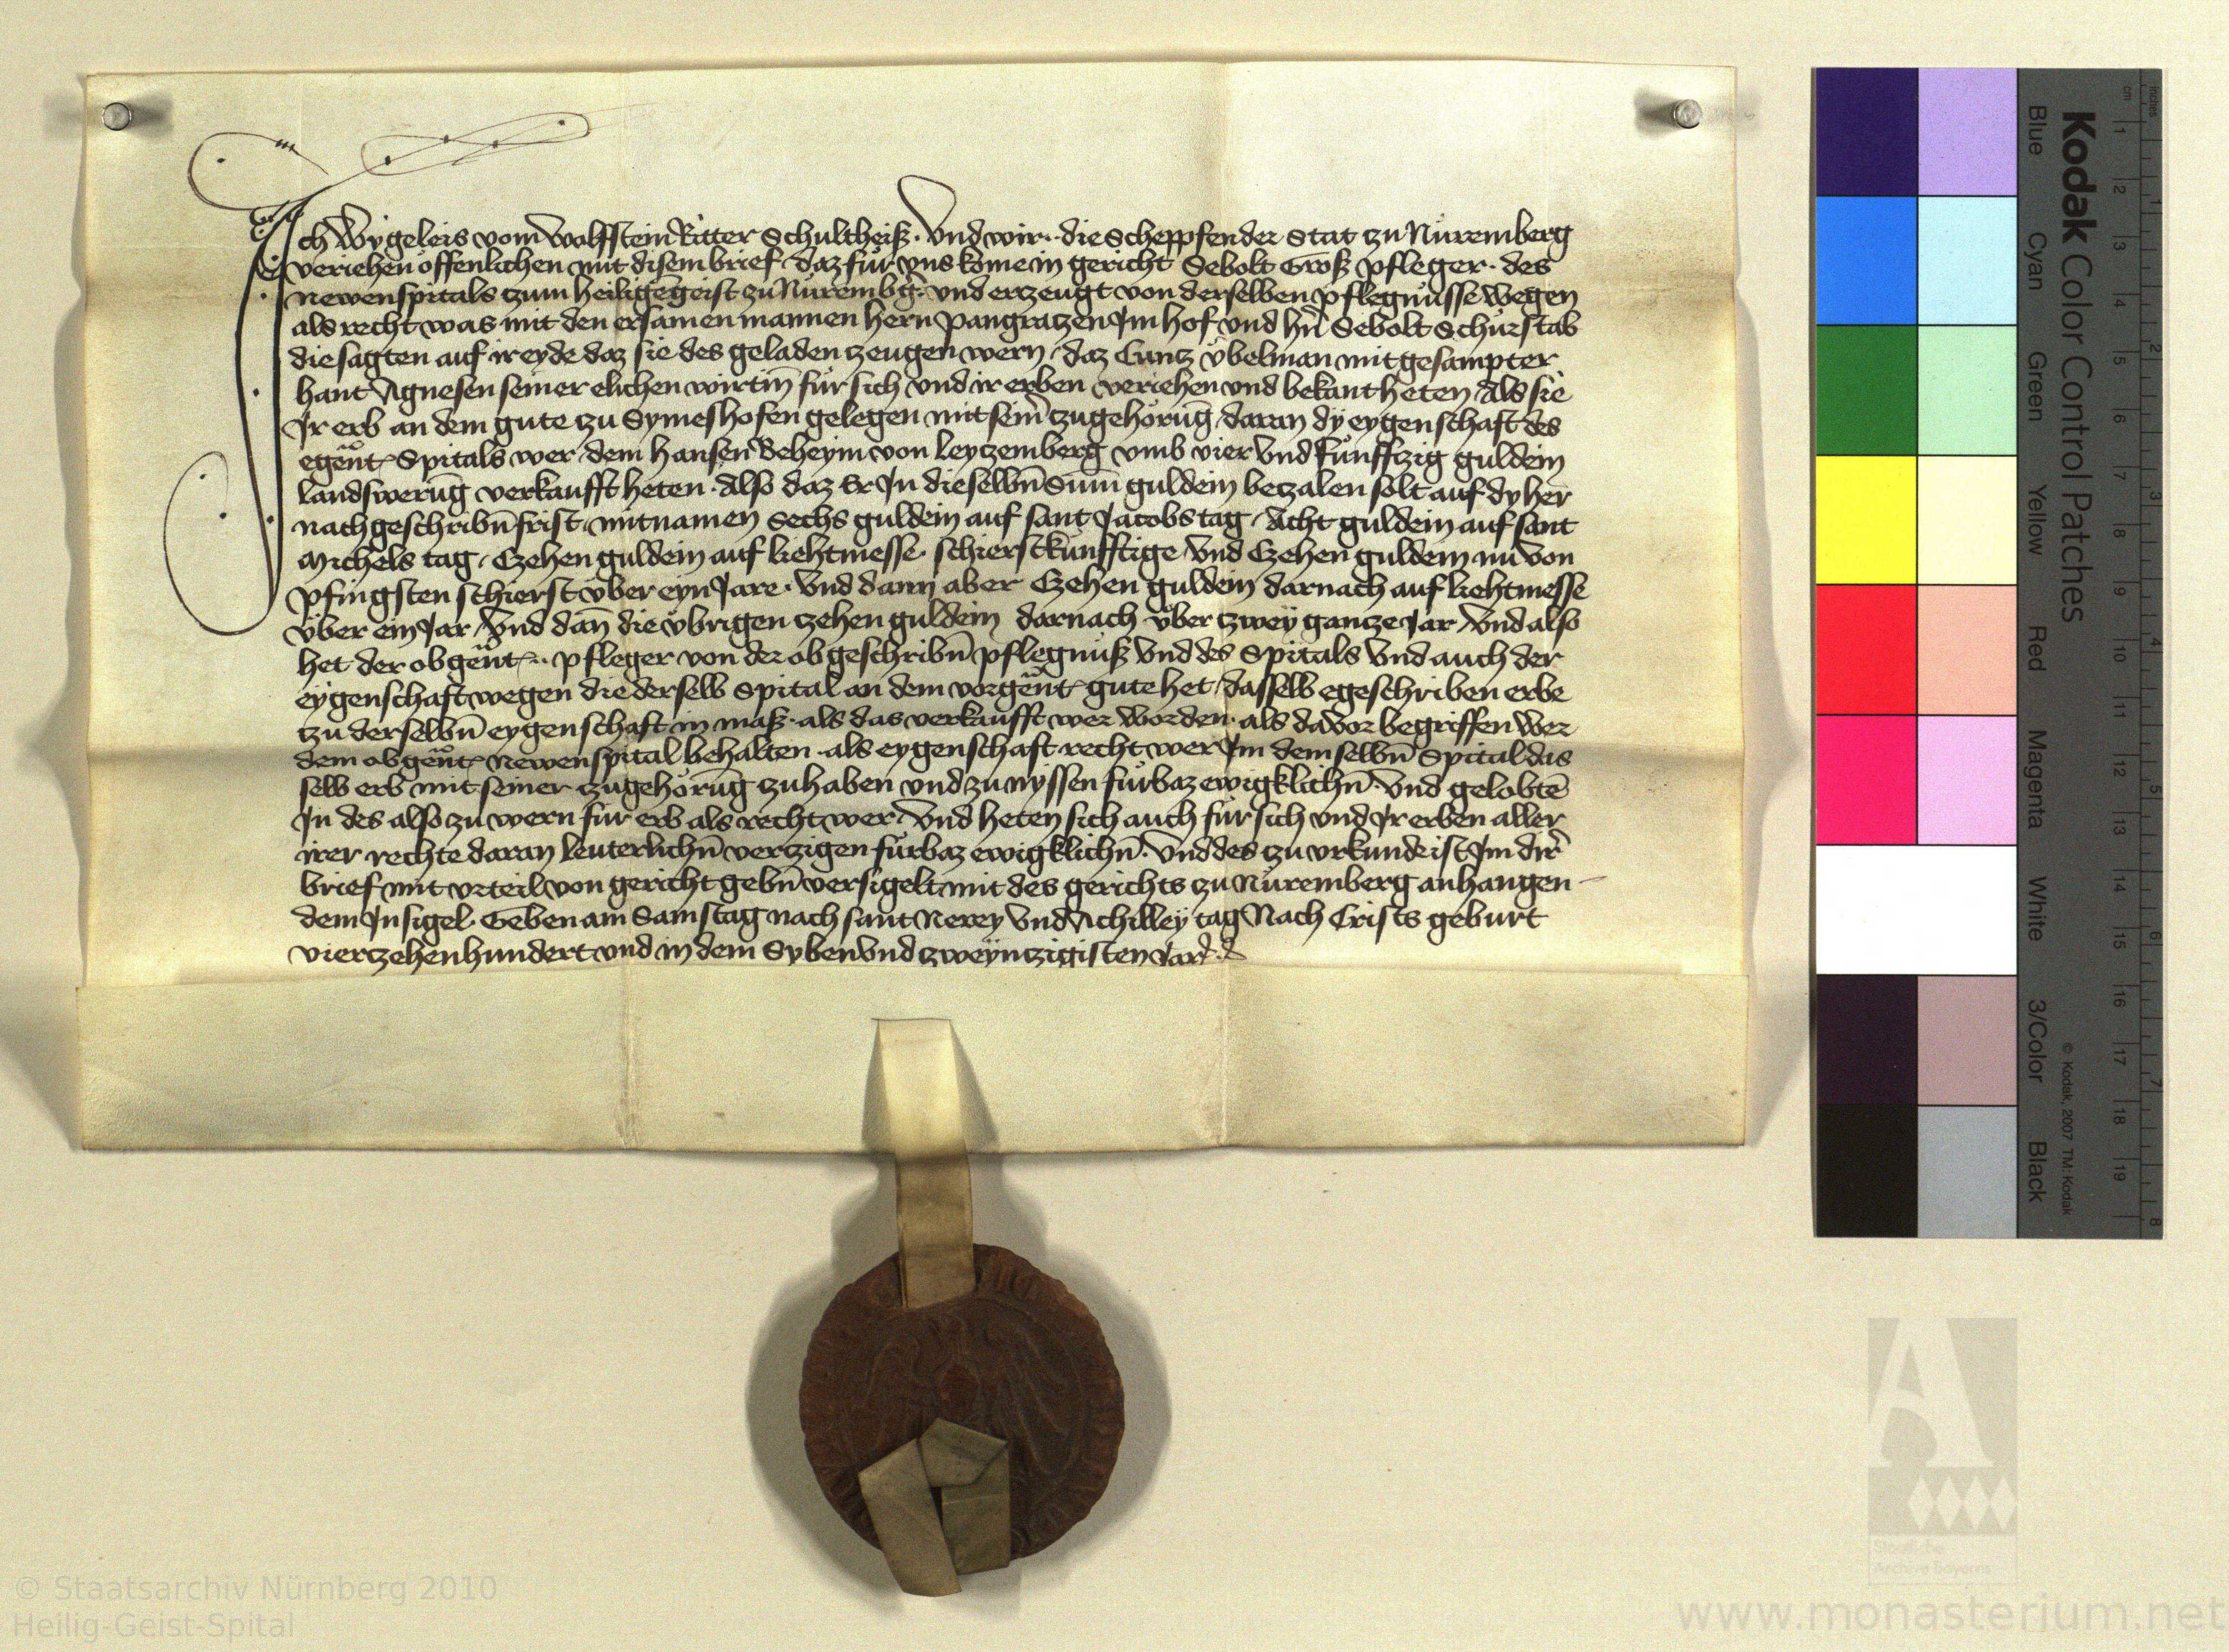 Ich Wygeleis vom Wolfstein Ritter Schultheiß · Vnd wir · die Scheppfen der Stat zu Nüremberg
veriehen offenlichen mit disem brief daz für vns kome in gericht Sebolt Groß pfleger · des
newen spitals zum heiligēgeist zu Nürembg̃ · vnd erzeugt von derselben pflegnüsse wegen
als recht was mit den ersamen mannen hern Pangratzen Im hof vnd hn̄ Sebolt Schürstab
die sagten auf ir eyde daz sie des geladen zeugen wern / daz Cuntz übelman mit gesampter
hant Agnesen seiner elichen wirtin̄ für sich vnd ir erben veriehen vnd bekant heten / Als sie
Ir erb an dem gute zu Symeshofen gelegen mit seim̄ zugehörūg / daran dy eygenschaft des
egen̄t Spitals wer / dem hansen Beheym von Leytzemberg vmb vier vnd fünffzig guldein
landswerūg verkaufft heten · Also daz Er In dieselbn̄ Sum̄ guldein betzalen solt auf dy her
nachgeschribn̄ frist / mit namen Sechs guldein auf sant Jacobs tag / Acht guldein auf sant
Michels tag / Czehen guldein auf liehtmesse · schierstkünfftige / Vnd Czehen guldein nu von
pfingsten schierst über eyn Jare · Vnd dann aber Czehen guldein darnach auf liehtmesse
über ein Jar / Vnd dan̄ die übrigen zehen guldein darnach über zwey gantze Jar / Vnd also
het der obgen̄t · pfleger von der obgeschribn̄ pflegnüß Vnd des Spitals Vnd auch der
eygenschaft wegen die derselb Spital an dem vorgen̄t gute het / dasselb egeschriben erbe
tzu derselbn̄ eygenschaft in maß · als das verkaufft wer worden · als davor begriffen wer
dem obgen̄t newen spital behalten · als eygenschaft recht wer Im demselbn̄ Spital das
selb erb mit seiner zugehörūg zu haben vnd zu nyssen fürbaz ewigklichn̄ · Vnd gelobtē
In des also zu wern für erb als recht wer / Vnd heten sich auch für sich vnd Ir erben aller
irer rechte daran leuterlichn̄ verzigen fürbaz ewigklichn̄ · Vnd des zu vrkunde ist Im dir̄
brief mit vrteil von gericht gebn̄ versigelt mit des gerichts zu Nüremberg anhangen
dem Insigel · Geben am Samstag nach sant Nerey Vnd Achilley tag Nach Crists geburt
viertzehenhundert vnd in dem Syben Vnd zweyntzigisten Jar
Kodak Color Control Patches
© Kodak, 2007 TM: Kodak
Blue Cyan Green Yellow Red Magenta White 3/Color Black
inches 1 2 3 4 5 6 7 8
cm 1 2 3 4 5 6 7 8 9 10 11 12 13 14 15 16 17 18 19
Staatliche
Archive Bayerns
© Staatsarchiv Nürnberg 2010
Heilig-Geist-Spital
www.monasterium.net